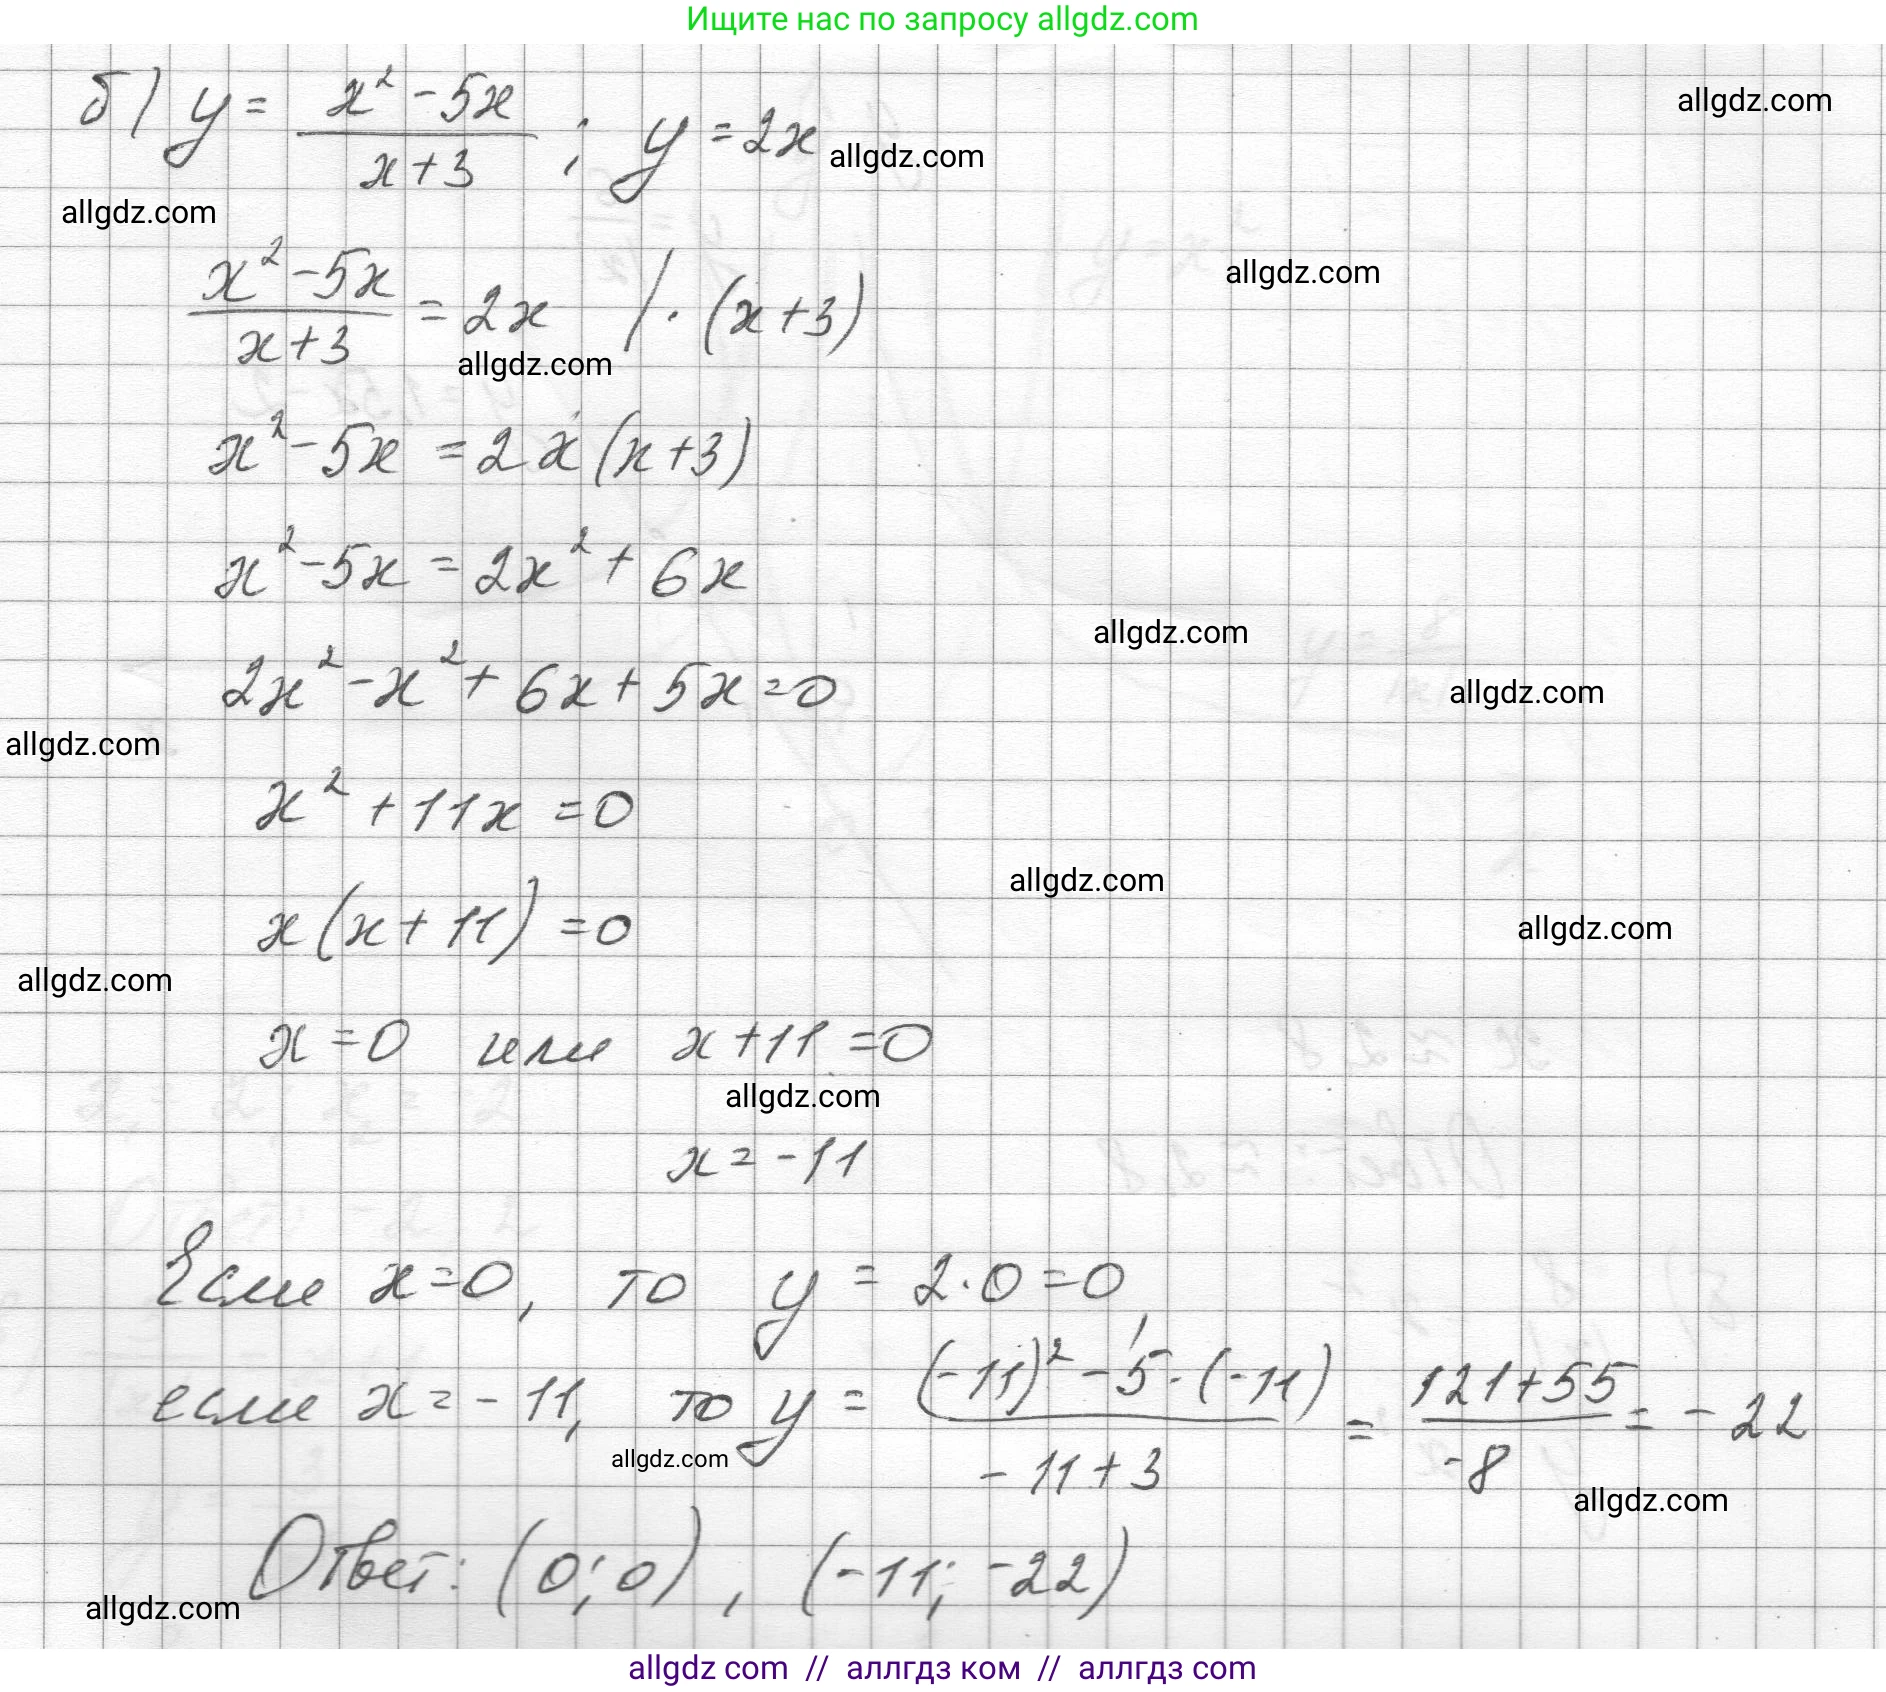 Ищите нас по запросу allgdz.com
б) y = (x² - 5x)/(x + 3) ; y = 2x
allgdz.com
allgdz.com
allgdz.com
(x² - 5x)/(x + 3) = 2x / · (x + 3)
allgdz.com
allgdz.com
x² - 5x = 2x(x + 3)
x² - 5x = 2x² + 6x
allgdz.com
2x² - x² + 6x + 5x = 0
allgdz.com
allgdz.com
x² + 11x = 0
allgdz.com
x(x + 11) = 0
allgdz.com
allgdz.com
x = 0 или x + 11 = 0
allgdz.com
x = -11
Если x = 0, то y = 2 · 0 = 0,
если x = -11, то y = ((-11)² - 5 · (-11))/(-11 + 3) = (121 + 55)/(-8) = -22
allgdz.com
allgdz.com
Ответ: (0; 0), (-11; -22)
allgdz.com
allgdz com // аллгдз ком // аллгдз com